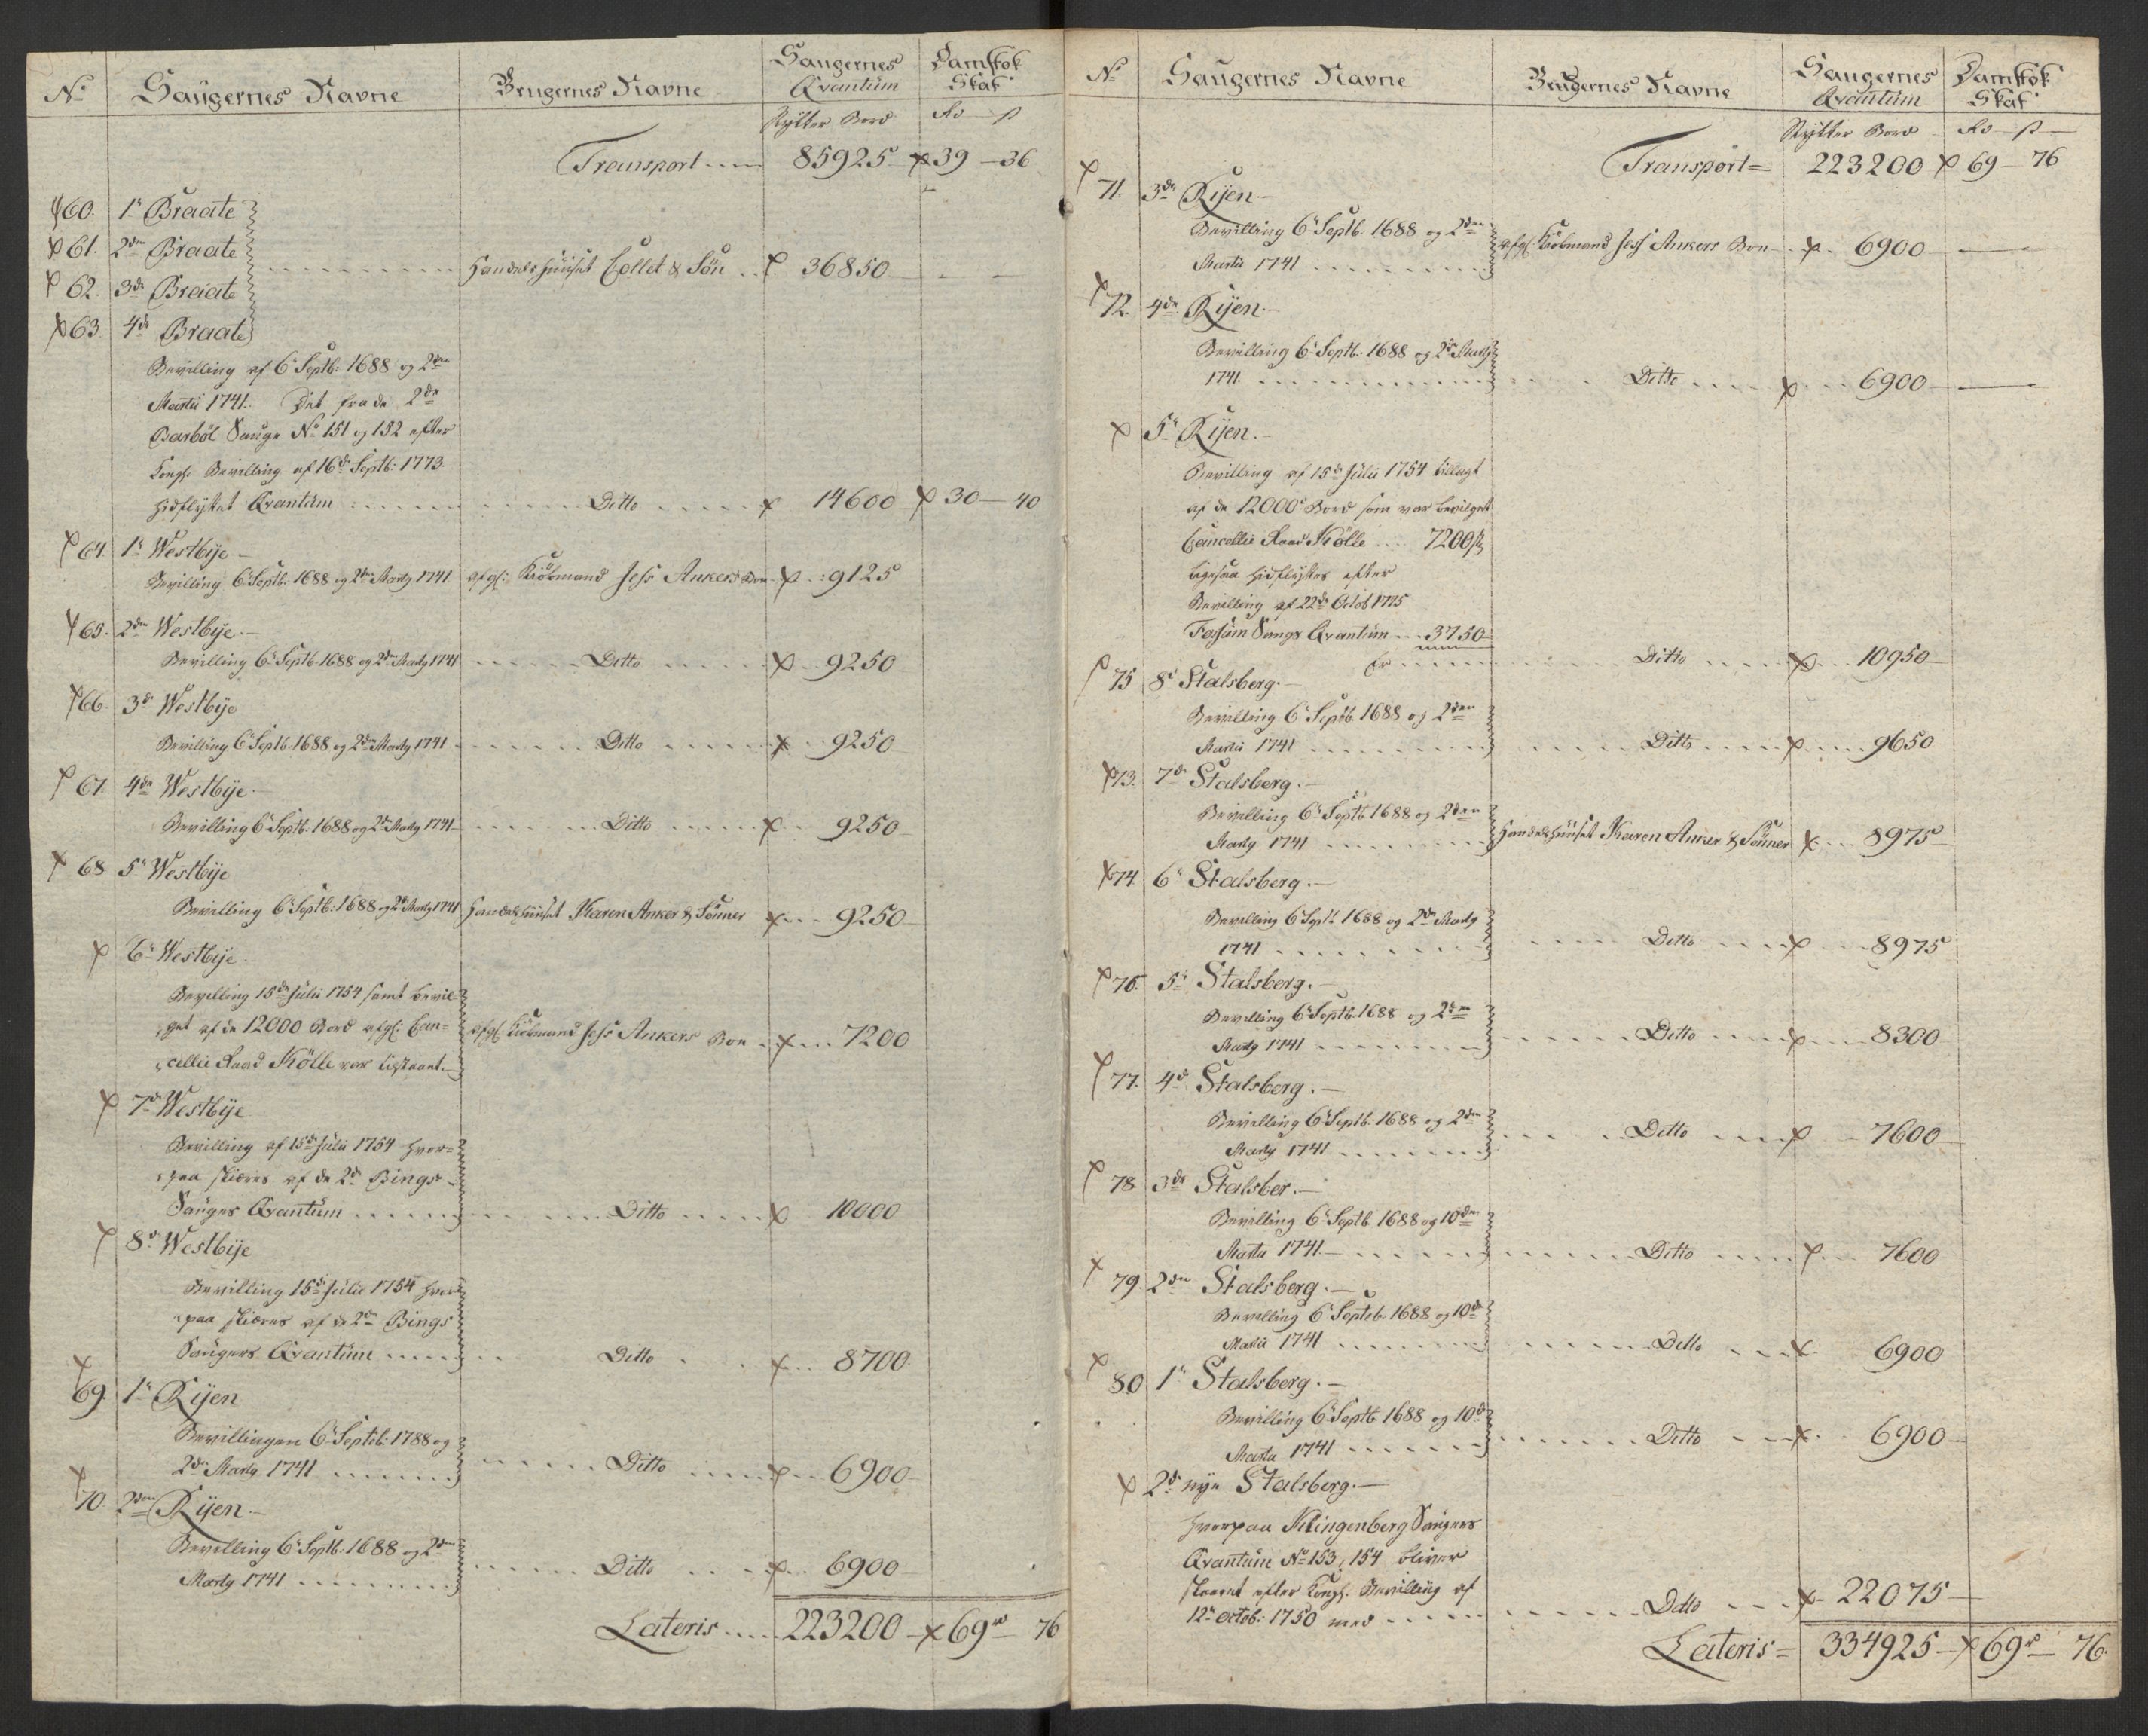 No Saugernes Navne Brugernes Navne Saugernes Qvantum Damstok Skat
Stykker Bord Rd ß
Transport 85925 39 - 36
60. 1e Braate
61. 2den Braate
62. 3de Braate Handels Huuset Collet & Søn 36850
63 4de Braate
Bevilling af 6te Septb: 1688 og 2den
Martii 1741. Det fra de 2de
Barbøl Sauge No 151 og 152 efter
Kongl. Bevilling af 16de Septb: 1773
hidflyttet Qvantum Ditto 14600 30 - 40
64. 1e Westbije
Bevilling 6 Septb. 1688 og 2den Marty 1741 afgl: Kiöbmand Jess Ankers Boe 9125
65. 2den Westbije
Bevilling 6 Septb. 1688 og 2den Marty 1741 Ditto 9250
66. 3de Westbije
Bevilling 6 Septb. 1688 og 2den Marty 1741 Ditto 9250
67. 4de Westbije
Bevilling 6 Septb. 1688 og 2den Marty 1741 Ditto 9250
68 5te Westbije
Bevilling 6 Septb: 1688 og 2den Marty 1741 Handels Huuset Karen Anker & Sönner 9250
6te Westbije
Bevilling 15de Julii 1754 samt bevil-
get af de 12000 Bord afgl: Can= afgl. Kiöbmand Jess Ankers Boe 7200
cellie Raad Kölle var tilstaaet
7de Westbije
Bevilling af 15de Julii 1754 hvor-
paa skiæres af de 2de Bings
Sauges Qvantum Ditto 10000
8de Westbije
Bevilling 15de Julii 1754 hvor
paa skiæres af de 2de Bings
Saugers Qvantum Ditto 8700
69. 1e Rijen
Bevillingen 6 Septbr: 1788 og
2den Marty 1741 Ditto 6900
70. 2den Rijen
Bevilling 6 Septb. 1688 og 2den
Marty 1741 Ditto 6900
Lateris 223200 69rd 76
No Saugernes Navne Brugernes Navne Saugernes Qvantum Damstok Skat
Stykker Bord Rd ß
Transport= 223200 69 - 76
71. 3de Rijen
Bevilling 6 Septb. 1688 og 2den
Martii 1741 afgl. Kiöbmand Jess Ankers Boe 6900
72. 4de Rijen
Bevilling 6 Septb. 1688 og 2de Marty
1741 Ditto 6900
5te Rijen.
Bevilling af 15de Julii 1754 tillagt
af de 12000 Bord som var bevilget
Cancellie Raad Kölle 7200
ligesaa hidflyttes efter
Bevilling af 22de Octob 1775
Fossum Saugs Qvantum 3750
Er Ditto 10950
75 8de Stalsberg.
Bevilling 6 Septb. 1688 og 2den
Martii 1741 Ditto 9650
73. 7de Stalsberg.
Bevilling 6 Septb 1688 og 2den
Marty 1741 Handels Huuset Karen Anker & Sönner 8975
74 6te Stalsberg.
Bevilling 6 Septb 1688 og 2den Marty
1741 Ditto 8975
76. 5te Stalsberg.
Bevilling 6 Septb 1688 og 2den
Marty 1741 Ditto 8300
77. 4de Stalsberg.
Bevilling 6 Septb. 1688 og 2den
Marty 1741 Ditto 7600
78 3de Stalsber.
Bevilling 6 Septb. 1688 og 10den
Martii 1741 Ditto 7600
79. 2den Stalsberg.
Bevilling 6 Septeb. 1688 og 10de
Martii 1741 Ditto 6900
80 1e Stalsberg.
Bevilling 6 Septb 1688 og 10de
Martii 1741 Ditto 6900
2de nye Stalsberg.
hvorpaa Klingenberg Saugers
Qvantum No 153, 154 bliver
skaaret efter Kongl. Bevilling af
12te Octob: 1750 med Ditto 22075
Lateris= 334925 69rd 76.